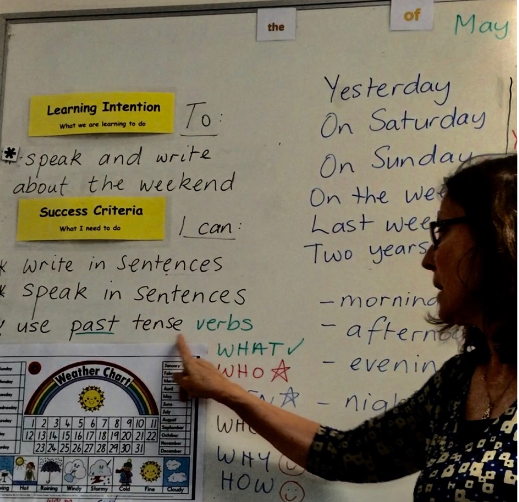 the
of
May
Learning Intention
What we are learning to do
To:
* speak and write
about the weekend
Success Criteria
What I need to do
I can:
* write in sentences
* speak in sentences
use past tense verbs
Yesterday
On Saturday
On Sunday
On the
Last
Two years
- morning
-
-
-
WHAT ✓
WHO ☆
WHY ☺
HOW ☺
Weather Chart
1 2 3 4 5 6 7 8 9 10 11
12 13 14 15 16 17 18 19 20 21 22
23 24 25 26 27 28 29 30 31
Hot Raining Windy Stormy Cold Fine Cloudy